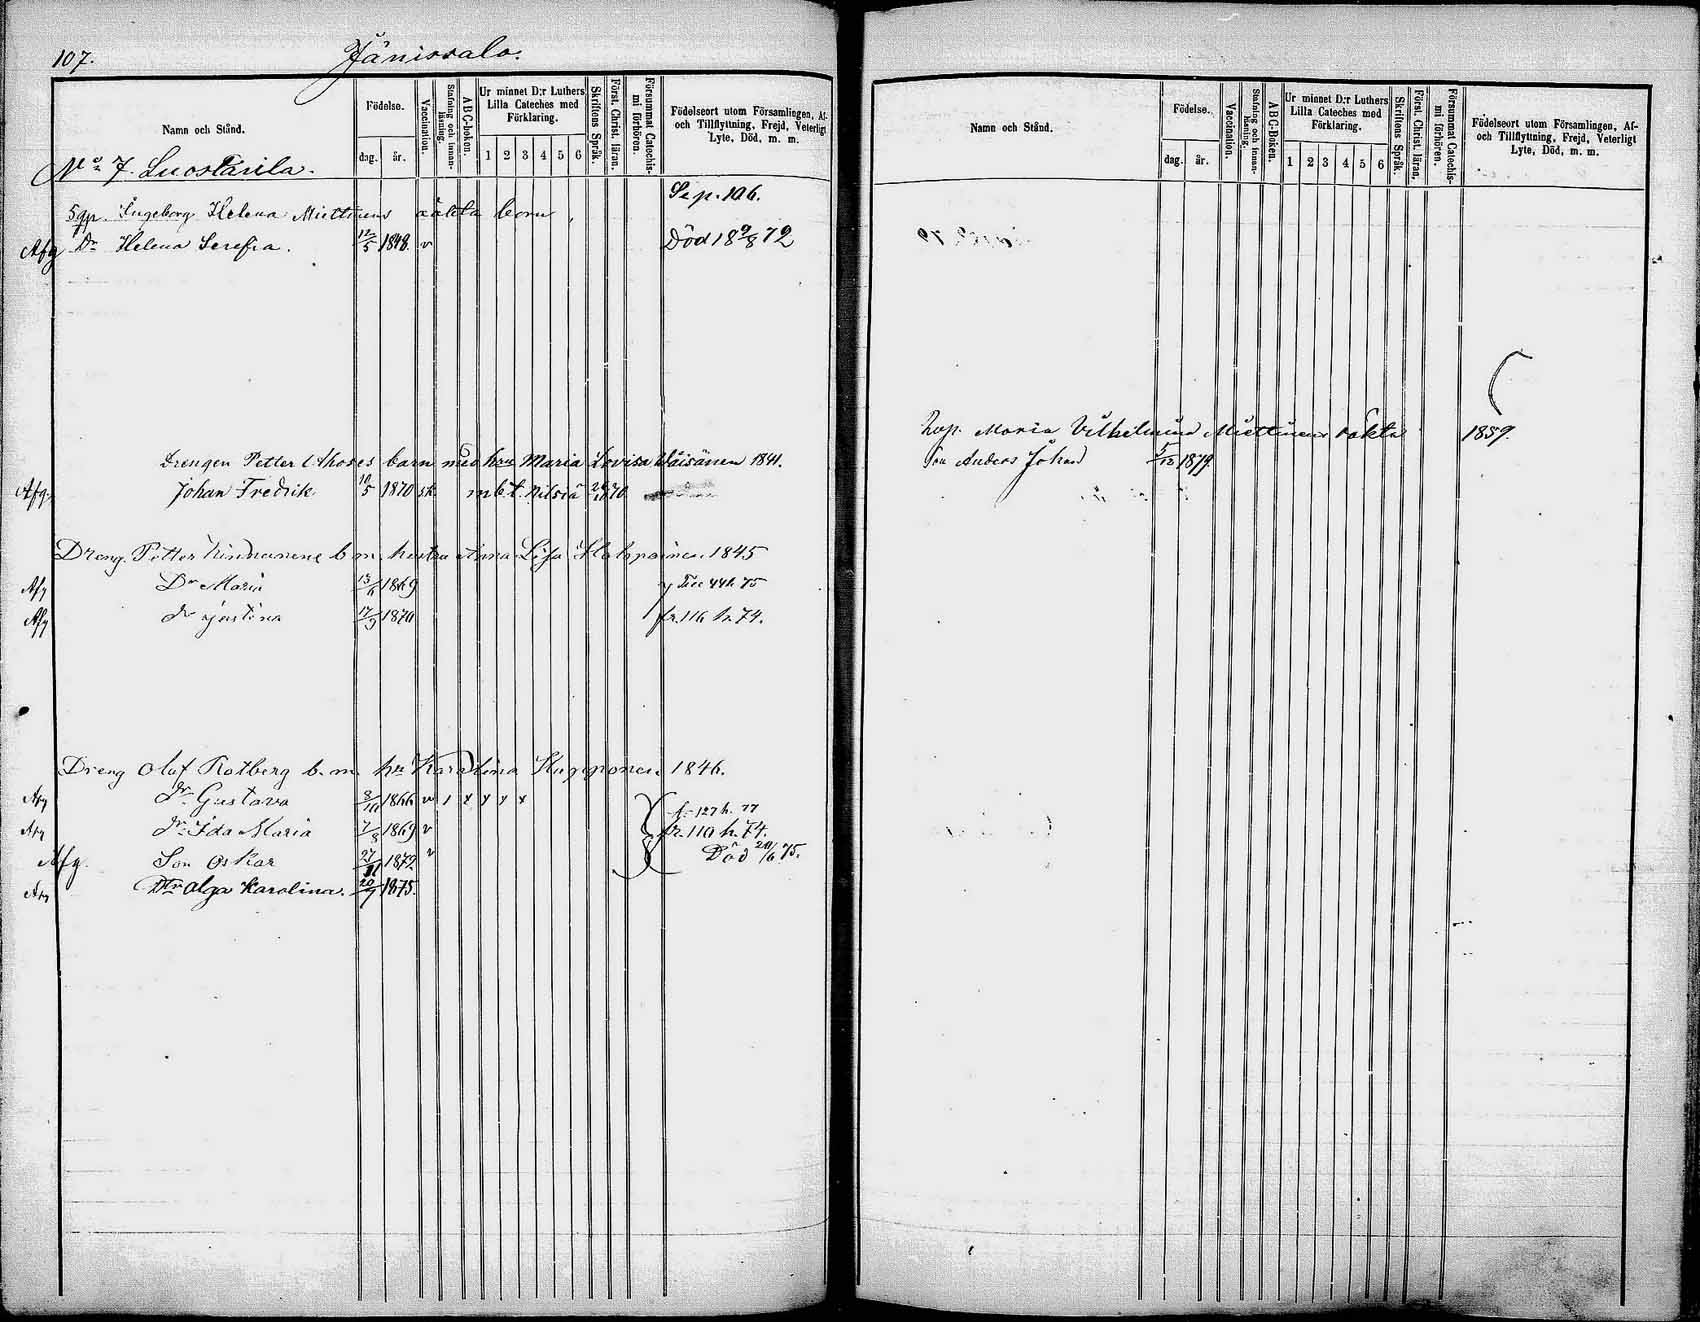 107. Jänissalo.
Namn och Stånd.
Födelse.
dag. år.
Vaccination.
Stafning och innanläsning.
ABC-boken.
Ur minnet D:r Luthers Lilla Cateches med Förklaring.
1 2 3 4 5 6
Skriftens Språk.
Först. Christ. läran.
Försummat Catechismi förhören.
Födelseort utom Församlingen, Af- och Tillflyttning, Frejd, Veterligt Lyte, Död, m. m.
No 7. Luostarila.
Se p. 106.
Sgp. Ingeborg Helena Miettinens oäkta barn
Afg Dr Helena Serefia. 12/5 1848. v Död 18 9/8 72
Drengen Petter Ahoses barn med hru Maria Lovisa Väisänen 1841.
Afg. Johan Fredrik 10/5 1870 sk. m b. t. Nilsiä 70
Dreng. Petter b m hustru Anna Lisa 1845
Afg Dr Maria 1869 44 h. 75
Afg Dr Justina 17/9 1870 fr. 116 h. 74.
Dreng Olof Rotberg b. m. hu Karolina 1846.
Afg Dr Gustava 8/10 1866 v / x x x x f. 127 h. 77
Afg Dr Ida Maria 7/8 1869 v fr. 110 h. 74.
Afg. Son Oskar 27/11 1872 v Död 20/6 75.
Afg Dtr Olga Karolina. 20/7 1875.
Namn och Stånd.
Födelse.
dag. år.
Vaccination.
Stafning och innanläsning.
ABC-Boken.
Ur minnet D:r Luthers Lilla Cateches med Förklaring.
1 2 3 4 5 6
Skriftens Språk.
Först. Christ. läran.
Försummat Catechismi förhören.
Födelseort utom Församlingen, Af- och Tillflyttning, Frejd, Veterligt Lyte, Död, m. m.
Maria Vilhelmina Miettinens oäkta 1859.
Son Anders Johan 5/12 1879.